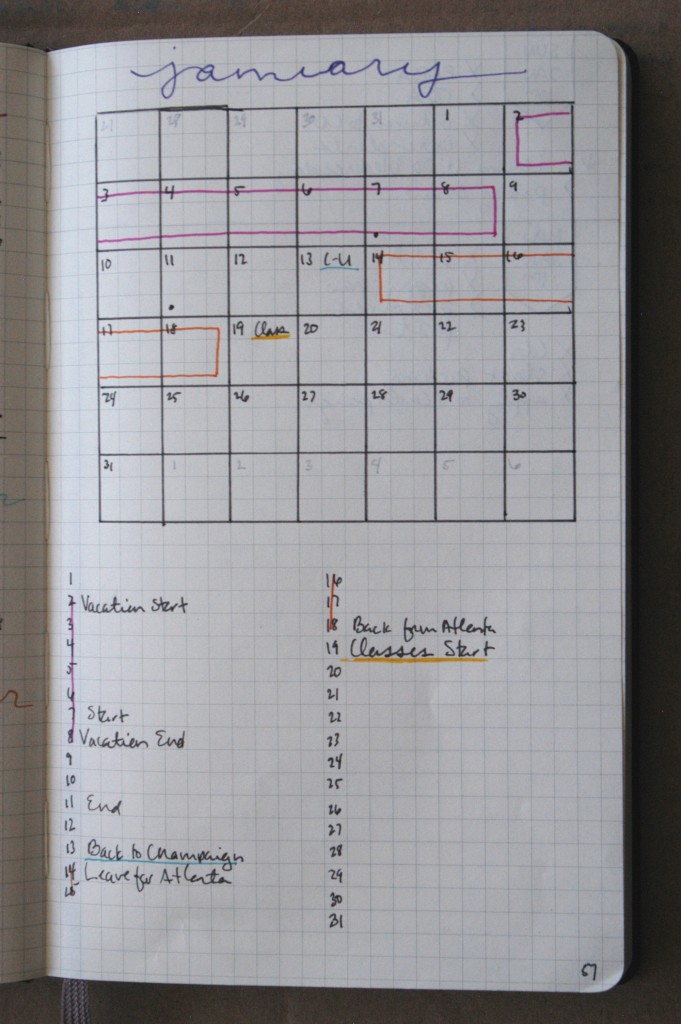 january
27 28 29 30 31 1 2
3 4 5 6 7 8 9
10 11 12 13 C-U 14 15 16
17 18 19 Class 20 21 22 23
24 25 26 27 28 29 30
31 1 2 3 4 5 6
1
2 Vacation Start
3
4
5
6
7 Start
8 Vacation End
9
10
11 End
12
13 Back to Champaign
14 Leave for Atlanta
15
16
17
18 Back from Atlanta
19 Classes Start
20
21
22
23
24
25
26
27
28
29
30
31
67